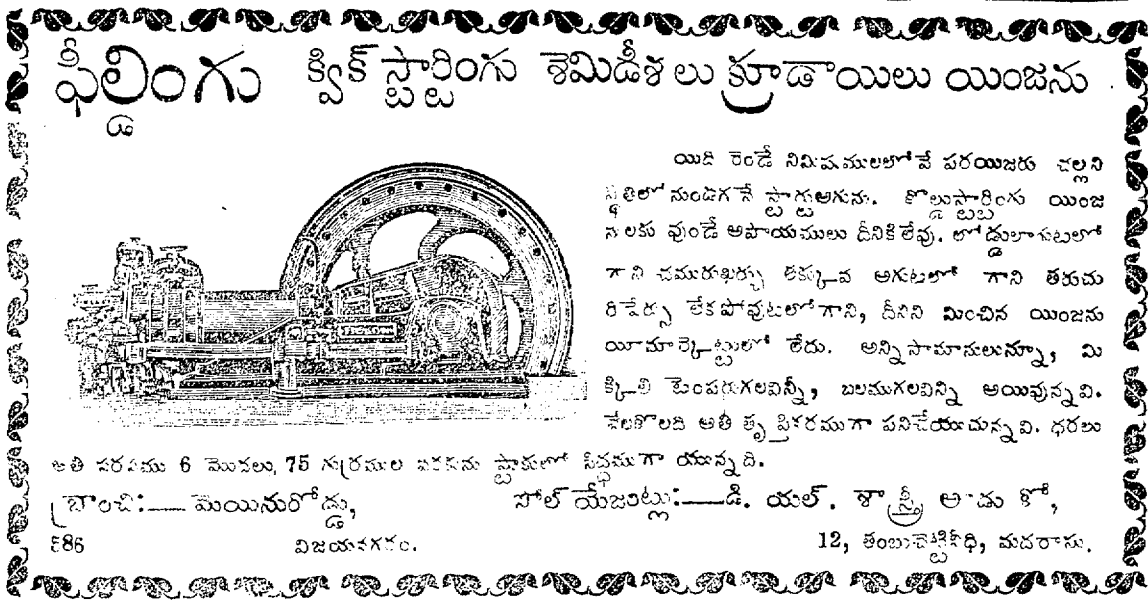 ఫీల్డింగు క్విక్ స్టార్టింగు శెమిడీశలు క్రూడాయిలు యింజను
యిది రెండే నిమిషములలోనే పరయిజరు చల్లని
స్థితిలో నుండగనే స్టార్టుఅగును. కోల్డుస్టార్టింగు యింజ
నులకు వుండే అపాయములు దీనికిలేవు. లోడ్డులాగుటలో
గాని చమురుఖర్చు తక్కువ అగుటలో గాని తరుచు
రిపేర్సు లేకపోవుటలోగాని, దీనిని మించిన యింజను
యీమార్కెట్టులో లేదు. అన్నిసామానులున్నూ, మి
క్కిలి టెంపరుగలవిన్నీ, బలముగలవిన్ని అయివున్నవి.
వేలకొలది అతీ తృప్తికరముగా పనిచేయుచున్నవి. ధరలు
అతి సరసము 6 మొదలు, 75 గుర్రముల వరకును స్టాకులో సిద్ధముగా యున్నది.
బ్రాంచి:— మెయినురోడ్డు, సోల్ యేజంట్లు:—డి. యల్. శాస్త్రీ అండు కో,
586 విజయనగరం. 12, తంబుచెట్టివీధి, మదరాసు.